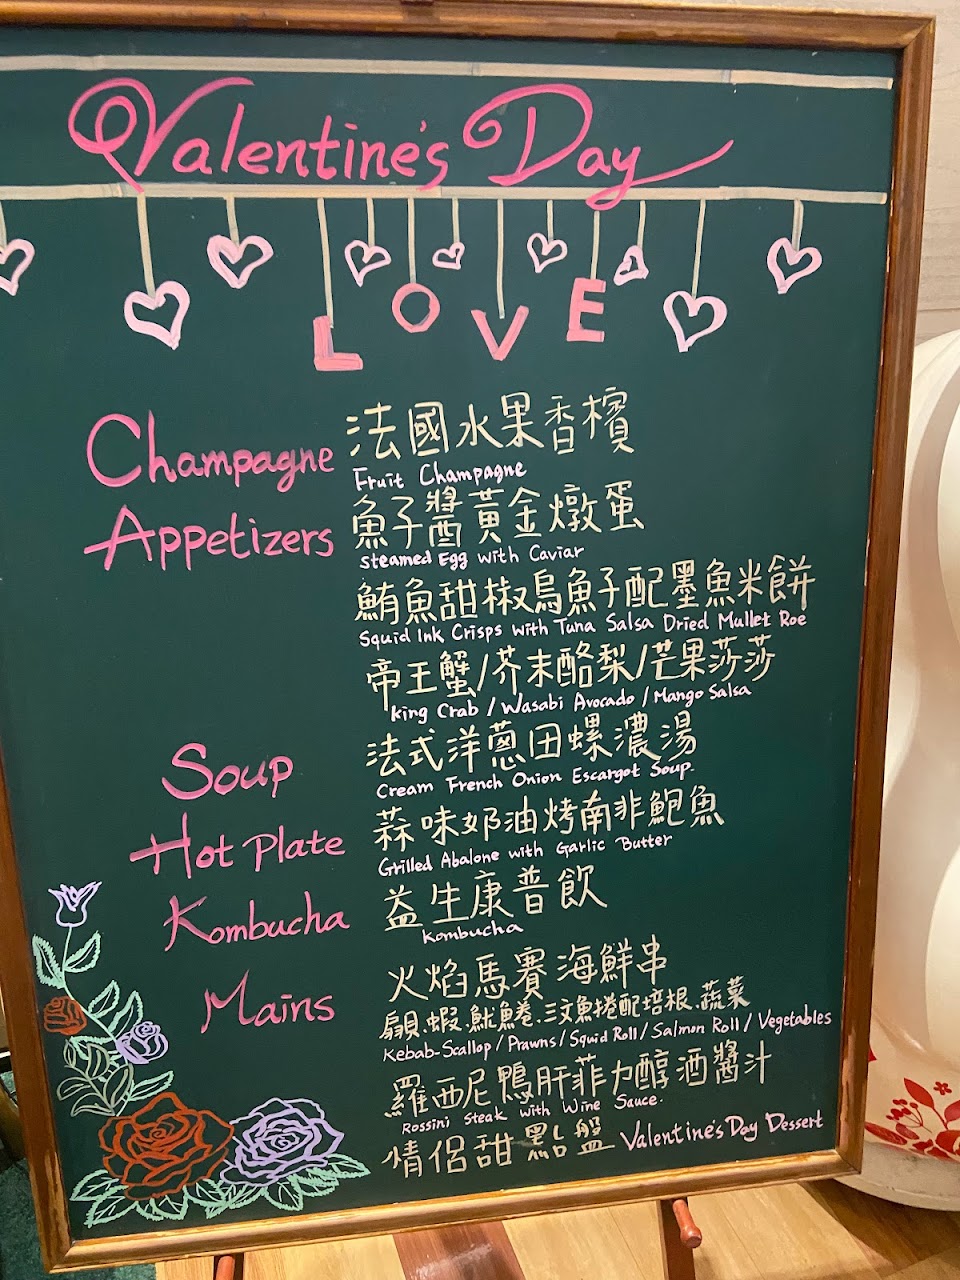 Valentine's Day
LOVE
Champagne 法國水果香檳
Fruit Champagne
Appetizers 魚子醬黃金燉蛋
Steamed Egg with Caviar
鮪魚甜椒烏魚子配墨魚米餅
Squid Ink Crisps with Tuna Salsa Dried Mullet Roe
帝王蟹/芥末酪梨/芒果莎莎
King Crab / Wasabi Avocado / Mango Salsa
Soup 法式洋蔥田螺濃湯
Cream French Onion Escargot Soup.
Hot Plate 蒜味奶油烤南非鮑魚
Grilled Abalone with Garlic Butter
Kombucha 益生康普飲
Kombucha
Mains 火焰馬賽海鮮串
扇貝.蝦.魷魚捲.三文魚捲配培根.蔬菜
Kebab-Scallop / Prawns / Squid Roll / Salmon Roll / Vegetables
羅西尼鴨肝菲力醇酒醬汁
Rossini Steak with Wine Sauce.
情侶甜點盤 Valentine's Day Dessert